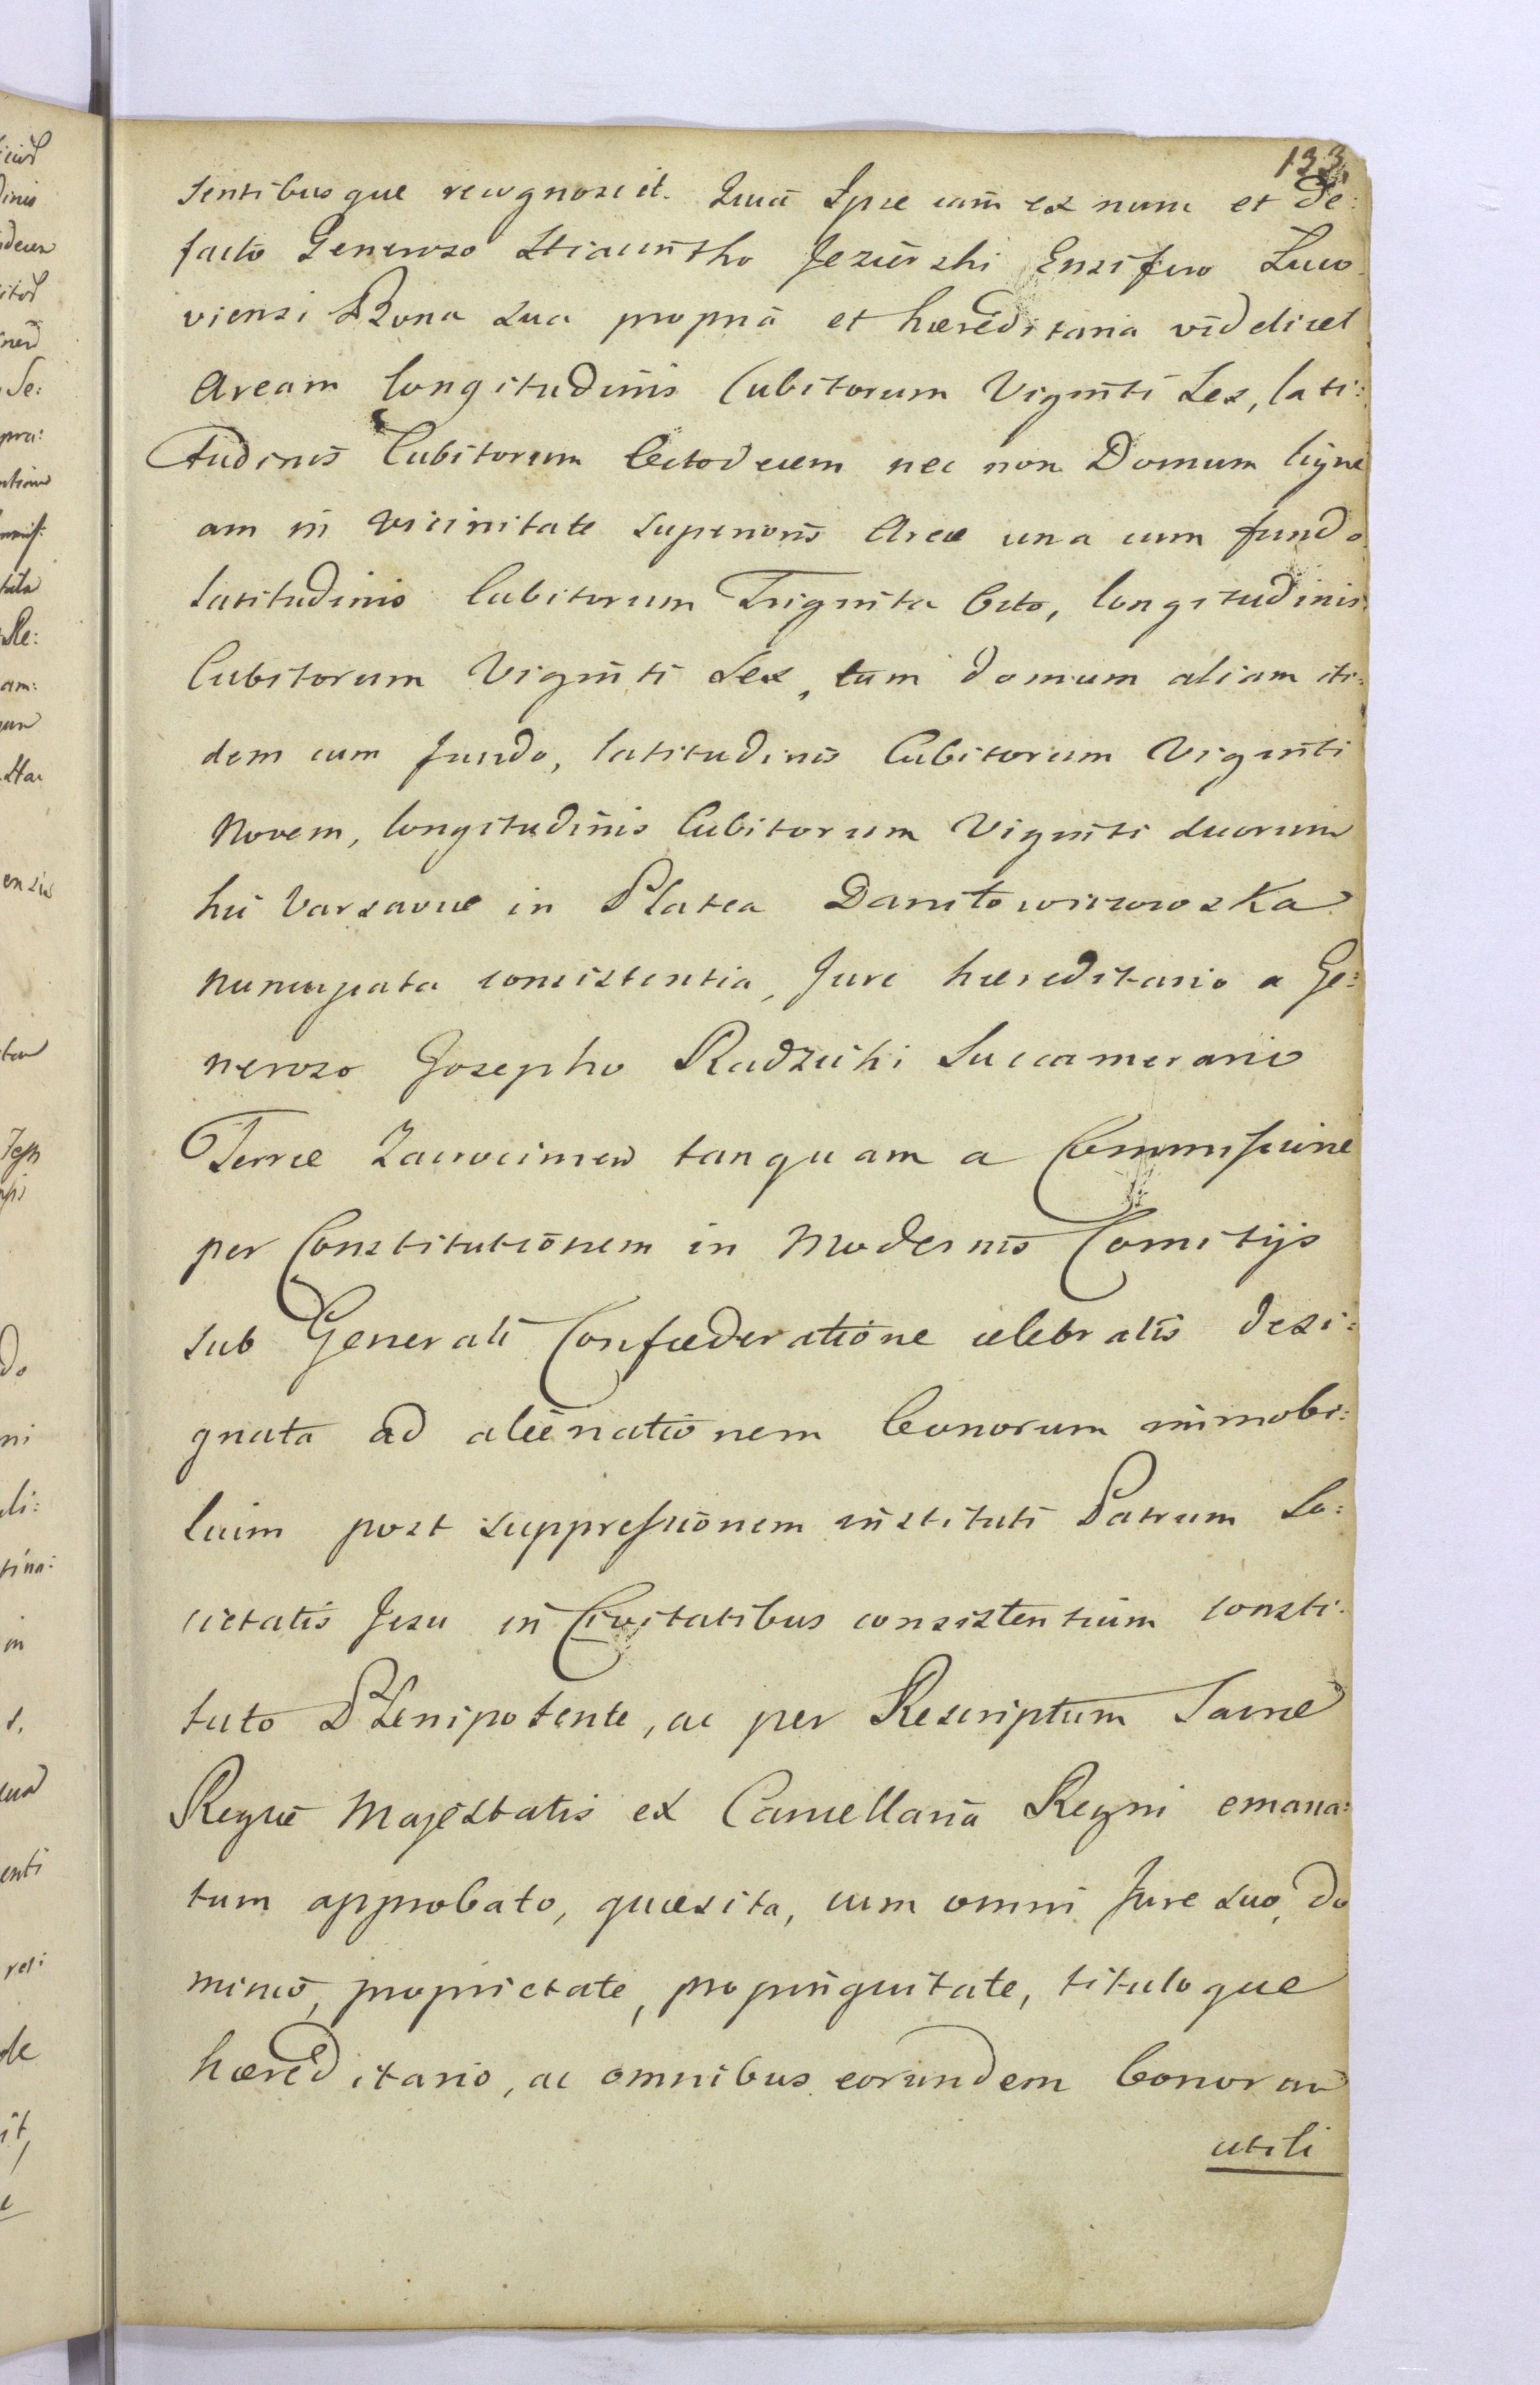 133.
sentibusque recognoscit. Quia Ipse iam ex nunc et de:
facto Generoso Hiacintho Jezierski Ensifero Luco
viensi Bona sua propria et hæreditaria videlicet
Aream longitudinis Cubitorum Viginti Sex, lati:
tudinis Cubitorum Octodecem nec non Domum ligne
am in vicinitate superioris Areæ una cum fundo
latitudinis Cubitorum Triginta Octo, longitudinis
Cubitorum Viginti Sex, tum domum aliam iti:
dem cum fundo, latitudinis Cubitorum Viginti
Novem, longitudinis Cubitorum Viginti duorum
hic Varsaviæ in Platea Daniłowiczowska
nuncupata consistentia, Jure hæreditario a Ge:
neroso Josepho Radzicki Succamerario
Terræ Zacrocimen tanquam a Commissione
per Constitutionem in Modernis Comitijs
sub Generali Confæderatione celebratis desi:
gnata ad alienationem bonorum immobi:
lium post suppressionem instituti Patrum So:
cietatis Jesu in Civitatibus consistentium consti:
tuto Plenipotente, ac per Rescriptum Sacræ
Regiæ Majestatis ex Cancellaria Regni emana:
tum approbato, quæsita, cum omni Jure suo, do
minio, proprietate, propinquitate, tituloque
hæreditario, ac omnibus eorundem bonorum
utili